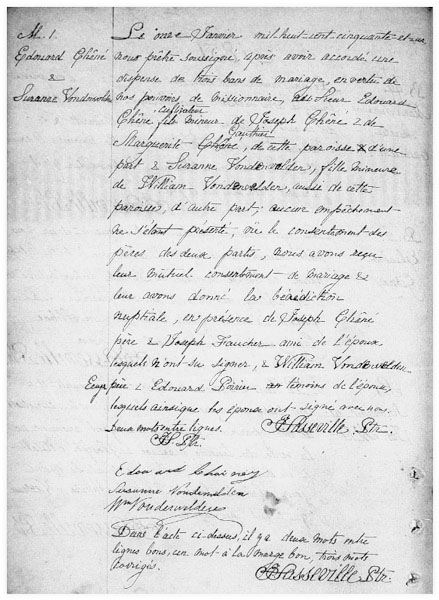 M. 1.
Edouard Chêné
&
Suzanne Vondenvelden
Le onze Janvier mil huit-cent cinquante et un
nous prêtre soussigné, après avoir accordé une
dispense de trois bans de mariage, en vertu de
nos pouvoirs de missionnaire, au Sieur Edouard
cultivateur
Chêne fils mineur de Joseph Chêne & de
Gauthier
Marguerite Chêne, de cette paroisse & d'une
part & Suzanne Vondenvelden, fille mineure
de William Vondenvelden, aussi de cette
paroisse, d'autre part; aucun empêchement
ne s'étant présenté, vu le consentement des
pères des deux parts, nous avons reçu
leur mutuel consentement de mariage &
leur avons donné la bénédiction
nuptiale, en présence de Joseph Chêne
père & Joseph Faucher ami de l'époux
lesquels n'ont su signer, & William Vondenvelden
père & Edouard Poirier témoins de l'épouse,
lesquels ainsi que les époux ont signé avec nous.
Deux mots entre lignes. Hasseville Ptr.
Ptr.
Edouard Chainey
Susanne Vondenvelden
Wm Vondenvelden
Dans l'acte ci-dessus, il y a deux mots entre
lignes bons, un mot à la marge bon, trois mots
corrigés.
Hasseville Ptr.